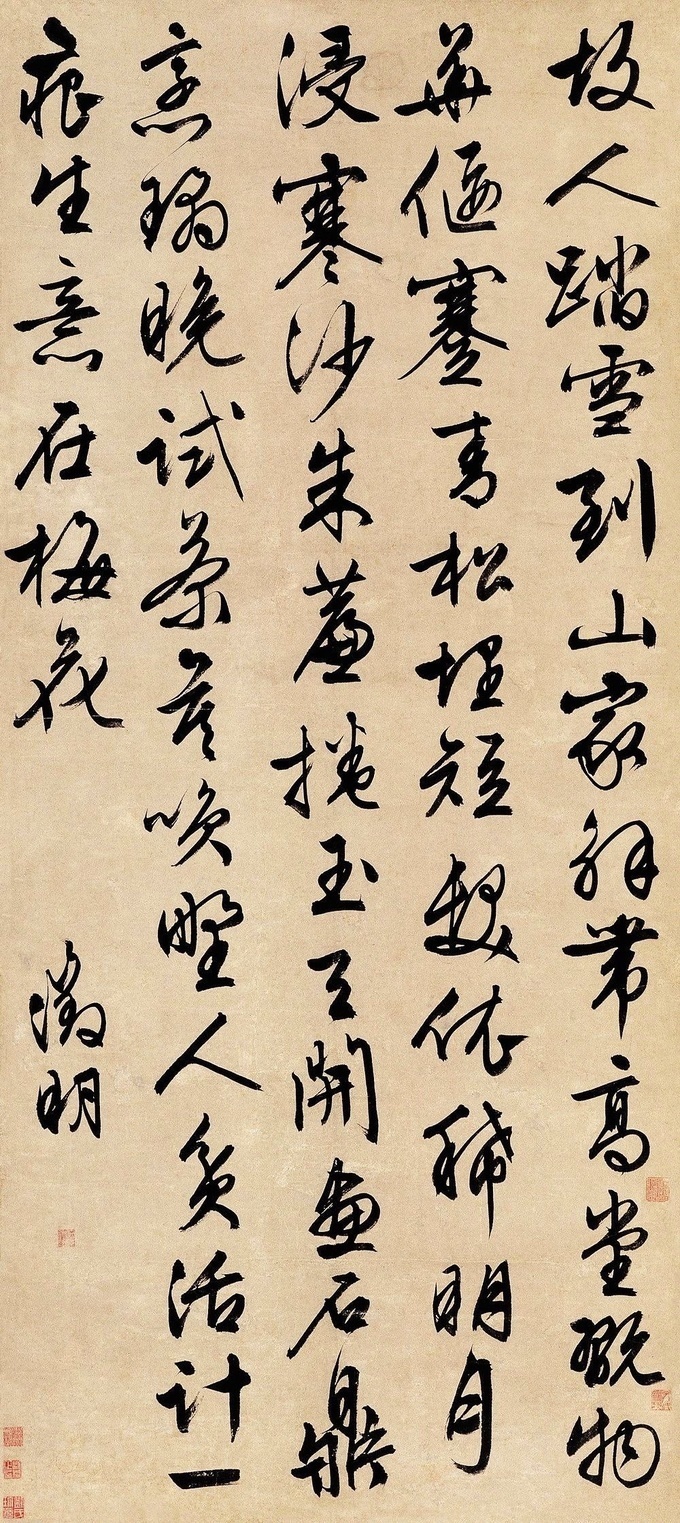 故人踏雪到山家解帶高堂翫物
華偃蹇青松埋短髮依稀明月
浸寒沙朱簾捲玉天開畫石鼎
烹瑤晚試茶莫喚野人貧活計一
痕生意在梅花
徵明